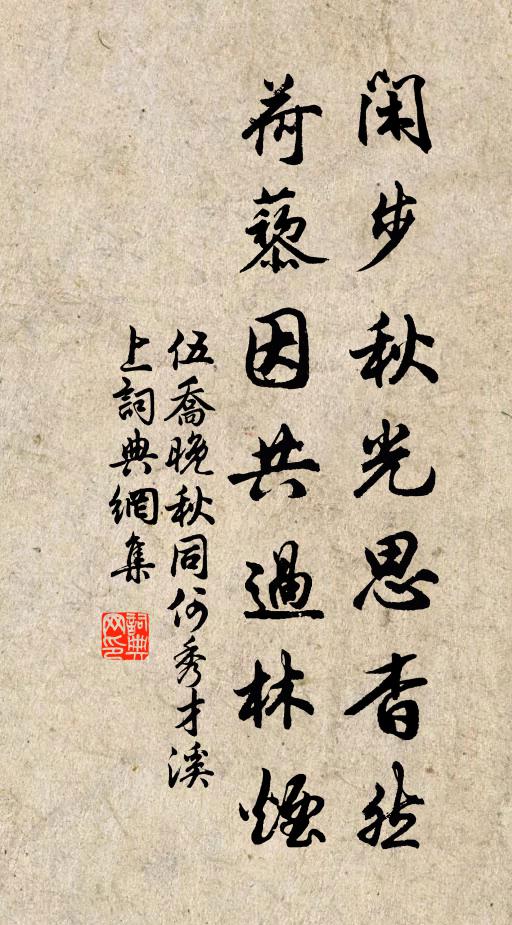 閑步秋光思杳然
荷藜因共過林煙
伍喬晚秋同何秀才溪
上詞典網集
詞典
网印